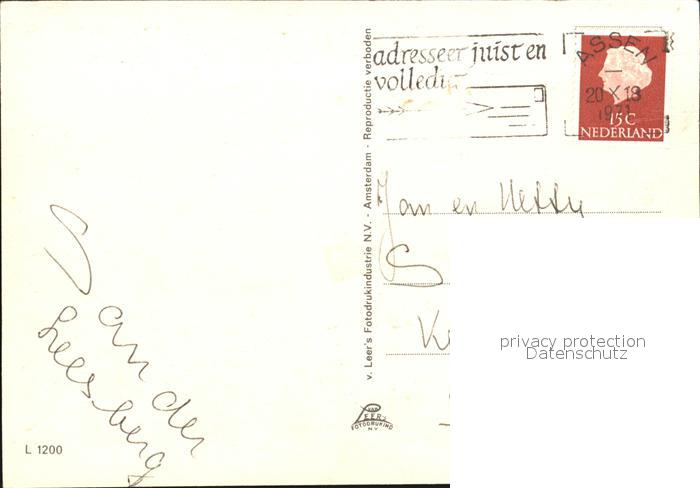 adresseer juist en
volledig
ASSEN
20 X 18
1971
15 C
NEDERLAND
v. Leer's Fotodrukindustrie N.V. - Amsterdam - Reproductie verboden
Jan en
S
K
privacy protection
Datenschutz
VAN
LEER'S
FOTODRUKIND
N.V.
van der
Leesberg
L 1200